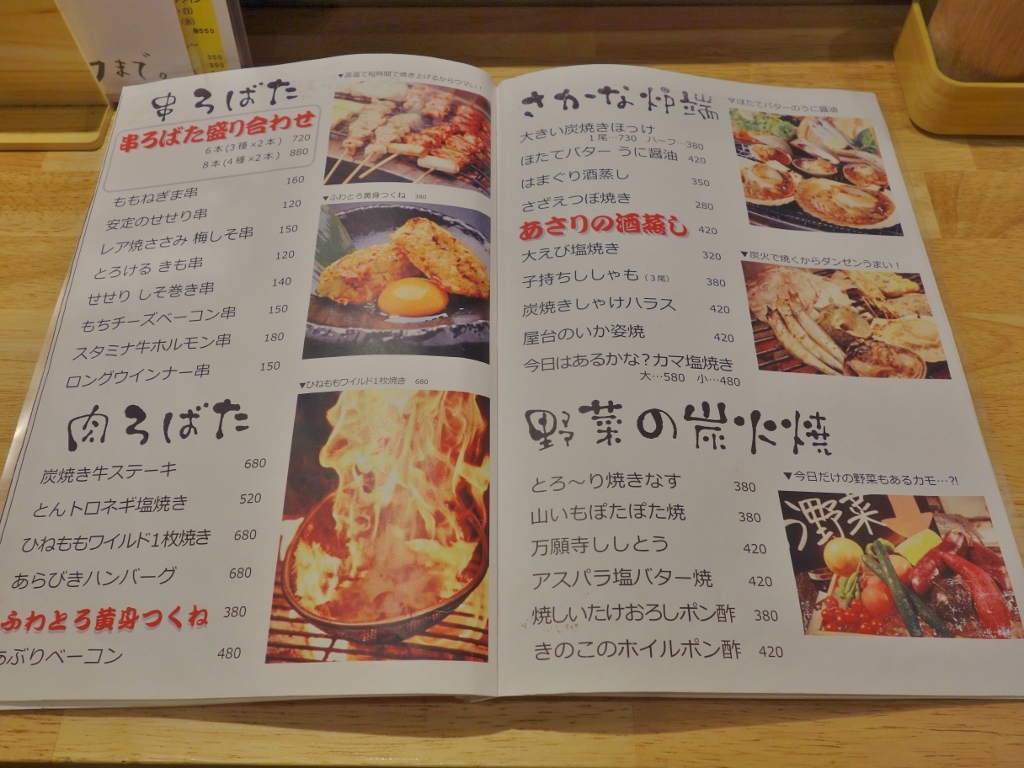 550
350
380
つまで。
串ろばた
串ろばた盛り合わせ
6本(3種×2本) 720
8本(4種×2本) 880
ももねぎま串 160
安定のせせり串 120
レア焼ささみ 梅しそ串 150
とろける きも串 120
せせり しそ巻き串 140
もちチーズベーコン串 150
スタミナ牛ホルモン串 180
ロングウインナー串 150
肉ろばた
炭焼き牛ステーキ 680
とんトロネギ塩焼き 520
ひねももワイルド1枚焼き 680
あらびきハンバーグ 680
ふわとろ黄身つくね 380
あぶりベーコン 480
▼高温で短時間で焼き上げるからウマい!
▼ふわとろ黄身つくね 380
▼ひねももワイルド1枚焼き 680
さかーな炉端
大きい炭焼きほっけ
1尾…730 ハーフ…380
ほたてバター うに醤油 420
はまぐり酒蒸し 350
さざえつぼ焼き 280
あさりの酒蒸し 420
大えび塩焼き 320
子持ちししゃも(3尾) 380
炭焼きしゃけハラス 420
屋台のいか姿焼 420
今日はあるかな?カマ塩焼き
大…580 小…480
▼ほたてバターのうに醤油
▼炭火で焼くからダンゼンうまい!
野菜の炭火焼
とろ〜り焼きなす 380
山いもぽたぽた焼 380
万願寺ししとう 420
アスパラ塩バター焼 420
焼しいたけおろしポン酢 380
きのこのホイルポン酢 420
▼今日だけの野菜もあるカモ…?!
野菜